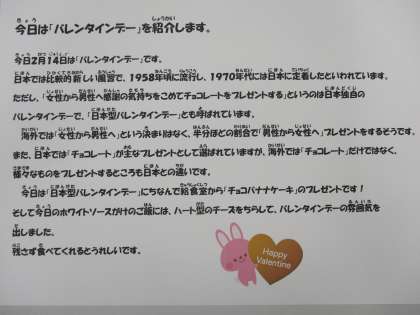 今日は「バレンタインデー」を紹介します。
今日2月14日は「バレンタインデー」です。
日本では比較的新しい風習で、1958年頃に流行し、1970年代には日本に定着したといわれています。
ただし、「女性から男性へ感謝の気持ちをこめてチョコレートをプレゼントする」というのは日本独自の
バレンタインデーで、「日本型バレンタインデー」とも呼ばれています。
海外では「女性から男性へ」という決まりはなく、半分ほどの割合で「男性から女性へ」プレゼントをするそうです。
また、日本では「チョコレート」が主なプレゼントとして選ばれていますが、海外では「チョコレート」だけではなく、
様々なものをプレゼントするところも日本との違いです。
今日は「日本型バレンタインデー」にちなんで給食室から「チョコバナナケーキ」のプレゼントです！
そして今日のホワイトソースがけのご飯には、ハート型のチーズをちらして、バレンタインデーの雰囲気を
出しました。
残さず食べてくれるとうれしいです。
Happy
Valentine